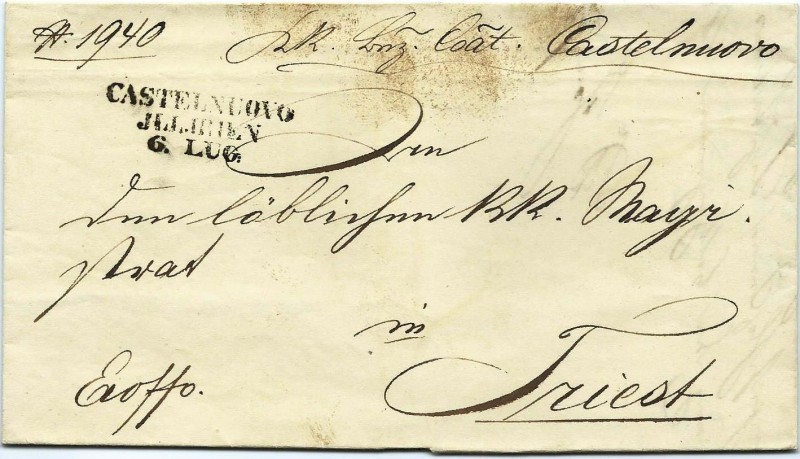 N. 1940
K.K. Bez. Coãt. Castelnuovo
CASTELNUOVO
ILLIRIEN
6. LUG.
An
den löblichen KK. Magi-
strat
in
Exoffo.
Triest